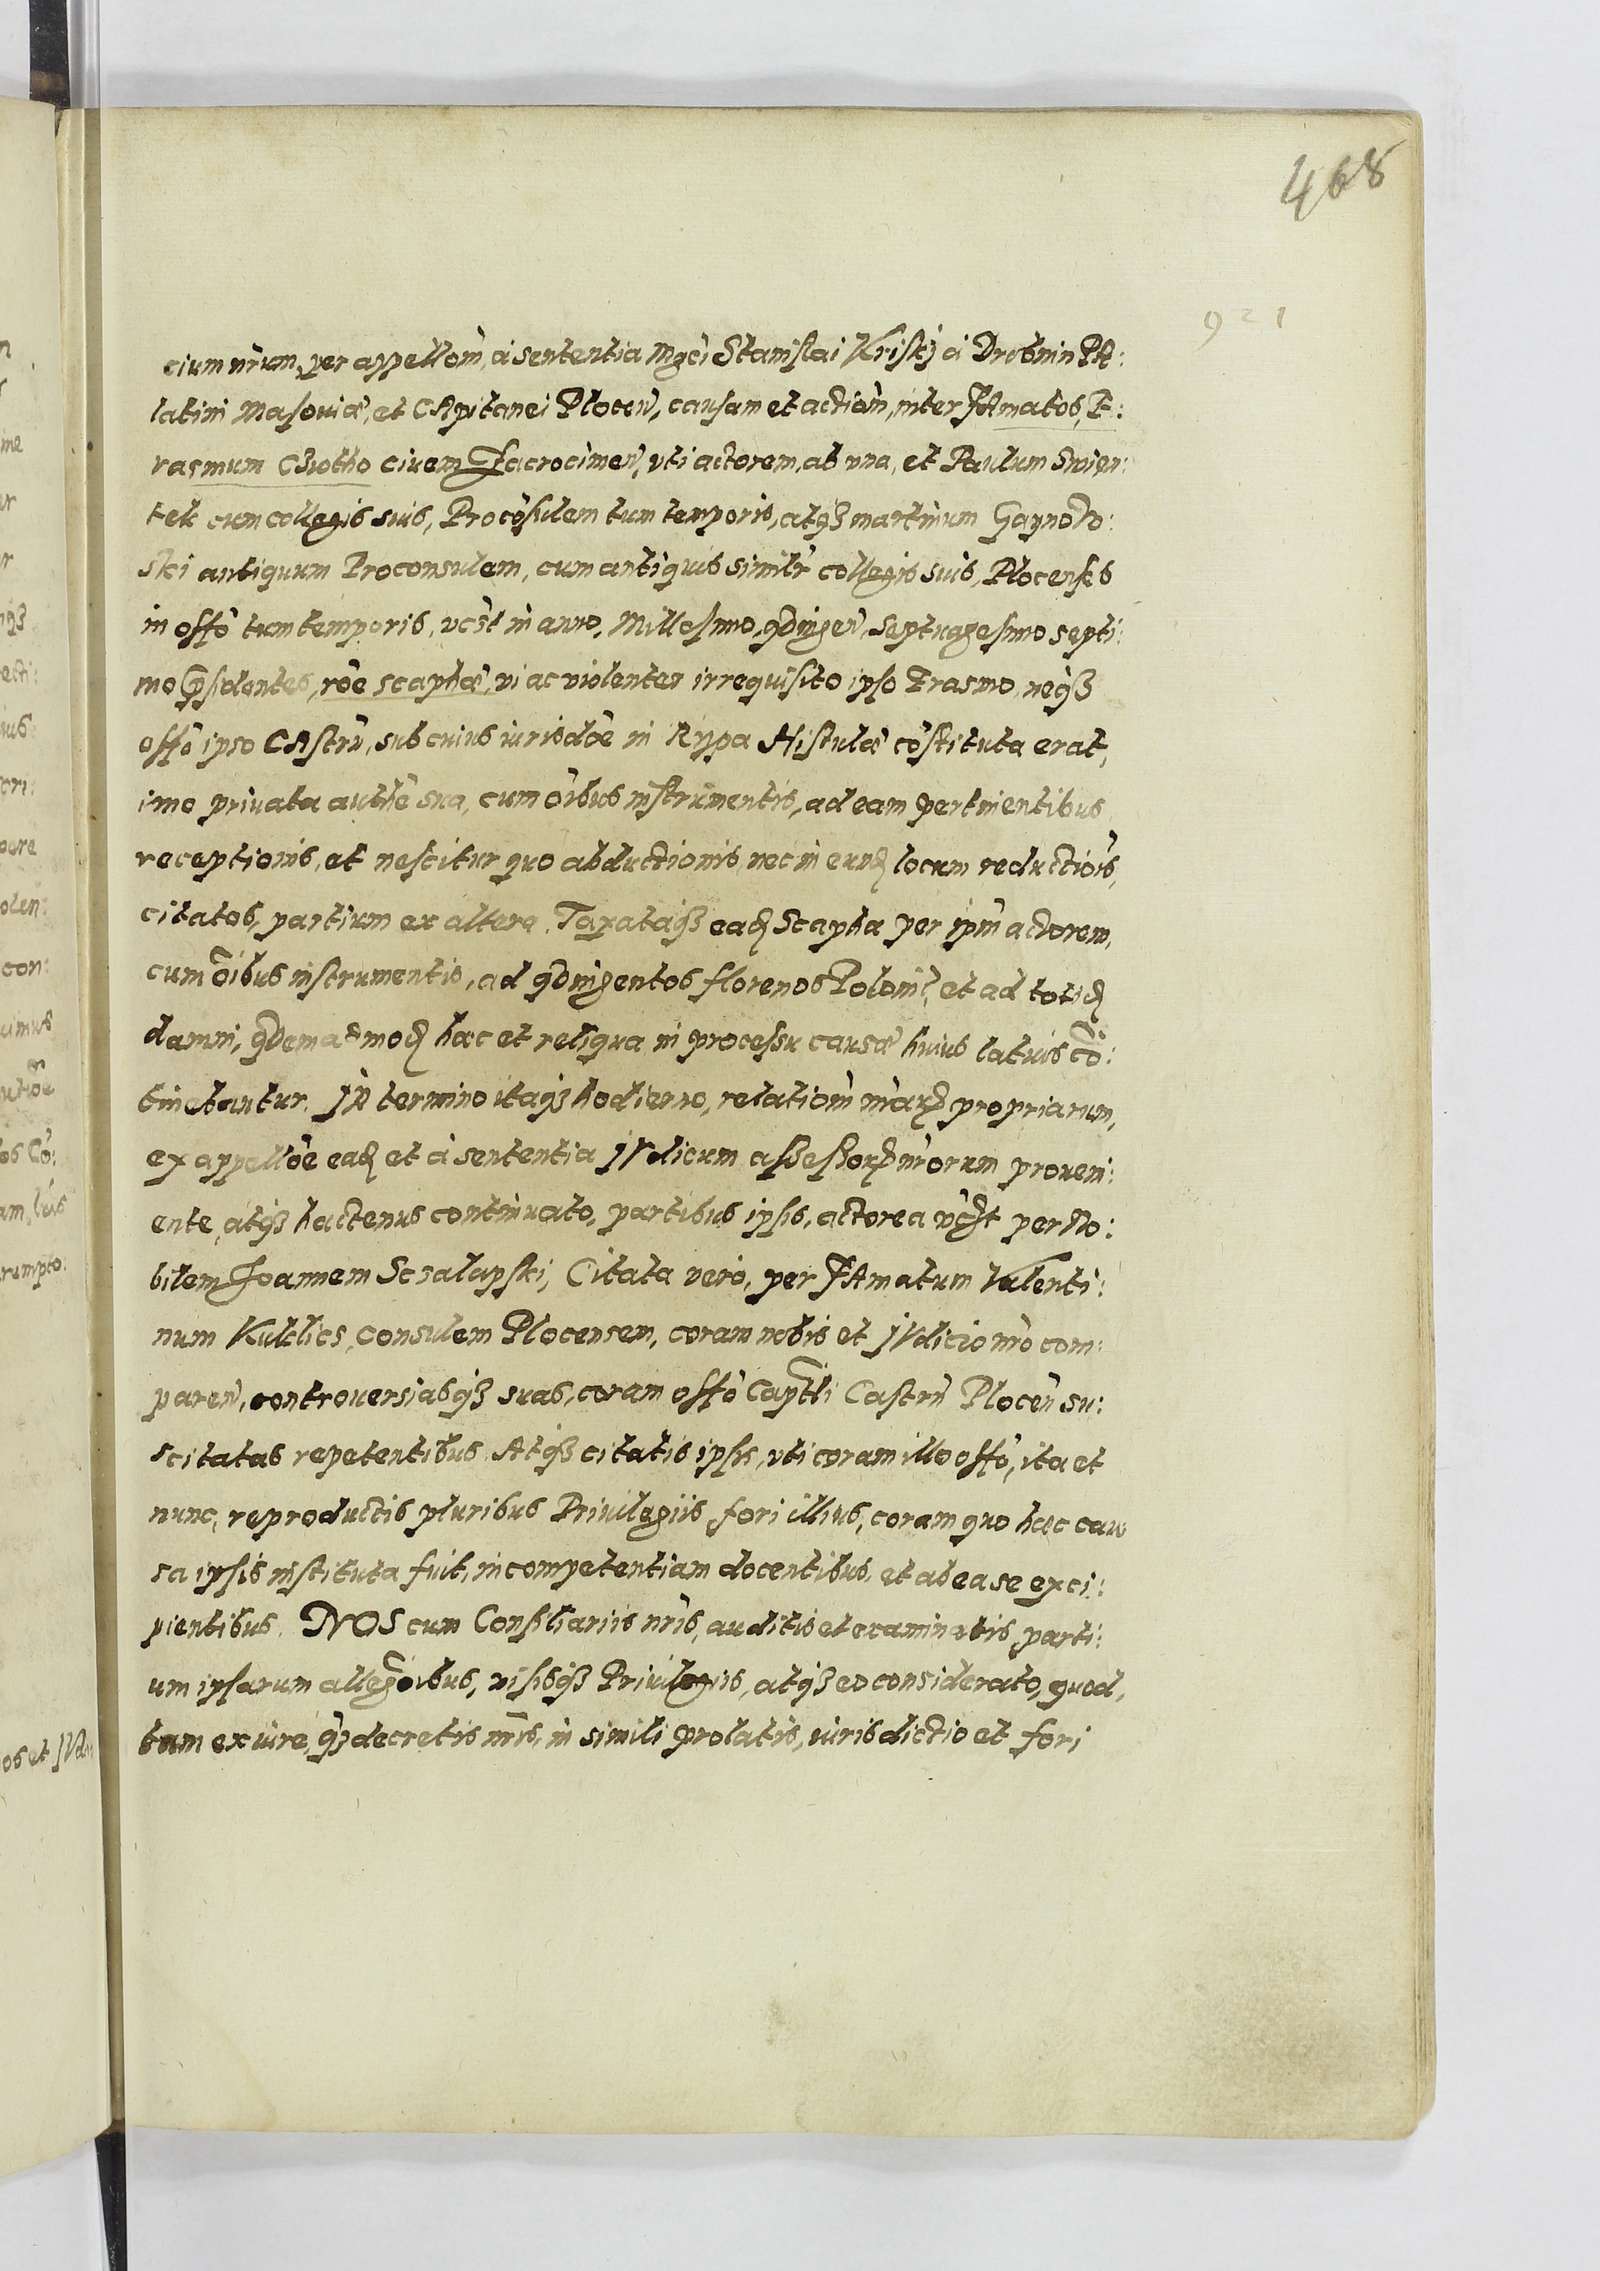 468
921
cium nr̃um, per appellom̃, à sententia Mgcì Stanislai Kriskj à Drobnin PA:
latini Masouiæ, et CApitanei Plocen̄, causam et actiom̃, inter FAmatos, E:
rasmum Czotho ciuem Zacrocimen̄, vti actorem, ab vna, et Paulum Swien:
tek cum collegis suis, Procõsulem tum temporis, atq3 martinum Gaynow:
ski antiquum Proconsulem, cum antiquis simil'r collegis suis, Plocenses
in offõ tum temporis, vcz̃t in anno, Millesimo, q̃dingen̄, septuagesimo septi:
mo p̃sidentes, rõe scaphæ, vi ac violenter irrequisito ipso Erasmo, neq3
offõ ipso CAstrn̄, sub cuius iurisdõe in Rypa Histulæ cõstituta erat,
imo priuata authẽ sua, cum õibus instrumentis, ad eam pertinentibus
receptionis, et nescitur quo abductionis, nec in eund̃ locum reductiõis,
citatos, partium ex altera. Taxataq3 ead̃ Scapha per ipm̃ actorem,
cum õibus instrumentis, ad q̃dingentos florenos Polonil', et ad totid̃
damni, q̃demadmod̃ hæc et reliqua in processu causæ huius latius cõ:
tinebantur. JN termino itaq3 hodierno, relatiom̃ nr̃arz propriarum,
ex appellõe ead̃ et à sententia JVdicum assessorz nr̃orum proueni:
ente, atq3 hactenus continuato, partibus ipsis, actorea vcz̃t per No:
bilem Joannem Sczalapski, Citata vero, per FAmatum Valenti:
num Kulclics, consulem Plocensem, coram nobis et JVdicio nr̃o com:
paren̄, controuersiasq3 suas, coram offõ Captl̃i Castrn̄ Plocen̄ su:
scitatas repetentibus. Atq3 citatis ipsis, vti coram illo offõ, ita et
nunc, reproductis pluribus Priuilegiis, fori illius, coram quo hæc cau
sa ipsis instituta fuit, incompetentiam docentibus, et ab ea se exci:
pientibus. NOS cum Consiliariis nr̃is, auditis et examinatis, parti:
um ipsarum allegõibus, visisq3 Priuilegiis, atq3 eo considerato, quod,
tam ex iure, q3 decretis nr̃is, in simili prolatis, iurisdictio et fori